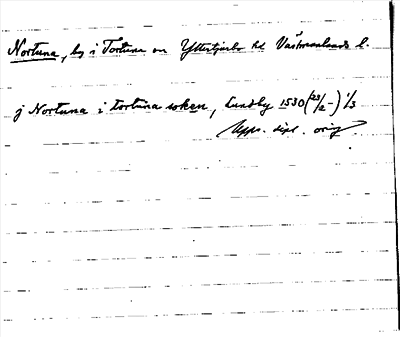 Nortuna, by i Tortuna sn Yttertjurbo hd Västmanlands l.
j Nortuna i tortuna soken, Lundby 1530 (23/2-) 1/3
Upps. dipl. orig